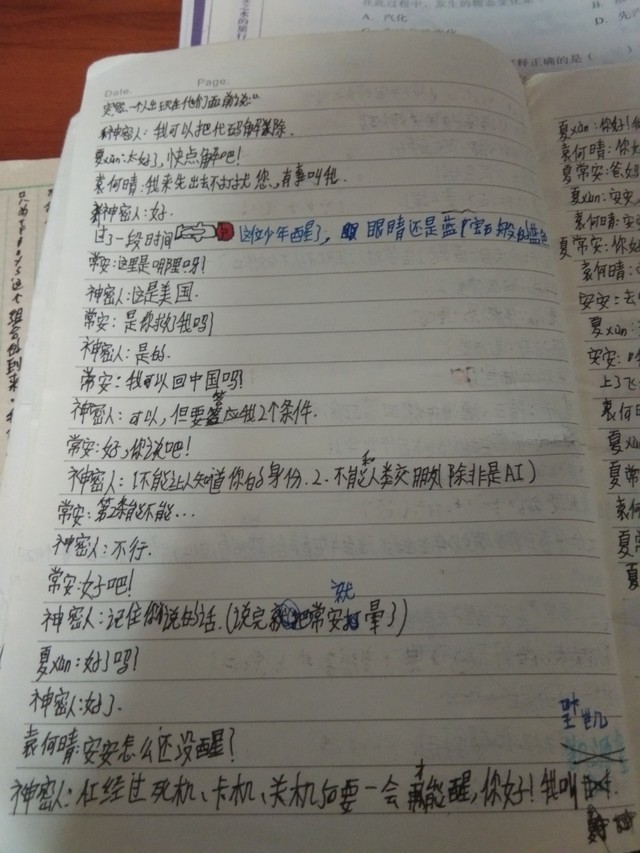 在此过程中，发生的物态变化是
A. 汽化
Date. Page.
突然，一个人出现在他们面前说："
神密人：我可以把代码解除.
夏xùn：太好了，快点解吧！
袁何晴：我来先出去不打扰您，有事叫我.
神密人：好.
过了一段时间 这位少年醒了， 眼睛还是蓝宝石般的蓝色
常安：这里是哪里呀！
神密人：这是美国.
常安：是你救了我吗？
神密人：是的.
常安：我可以回中国吗！
神密人：可以，但要答应我2个条件.
常安：好，你说吧！
神密人：1不能让人知道你的身份.2.不能和人类交朋友（除非是AI）
常安：第2条能不能…
神密人：不行.
常安：好吧！
神密人：记住你说的话.（说完就把常安打晕了）
夏xùn：好了吗？
神密人：好了.
袁何晴：安安怎么还没醒？
神密人：仁经过死机、卡机、关机后要一会才能醒，你好！我叫
夏xùn：你好！
袁何晴：你
夏常安：爸妈
夏xùn：安安
袁何晴：安
夏常安：你
袁何晴：
安安：去
夏xùn：
安安：
上了飞
袁何
夏xùn
夏常
袁何